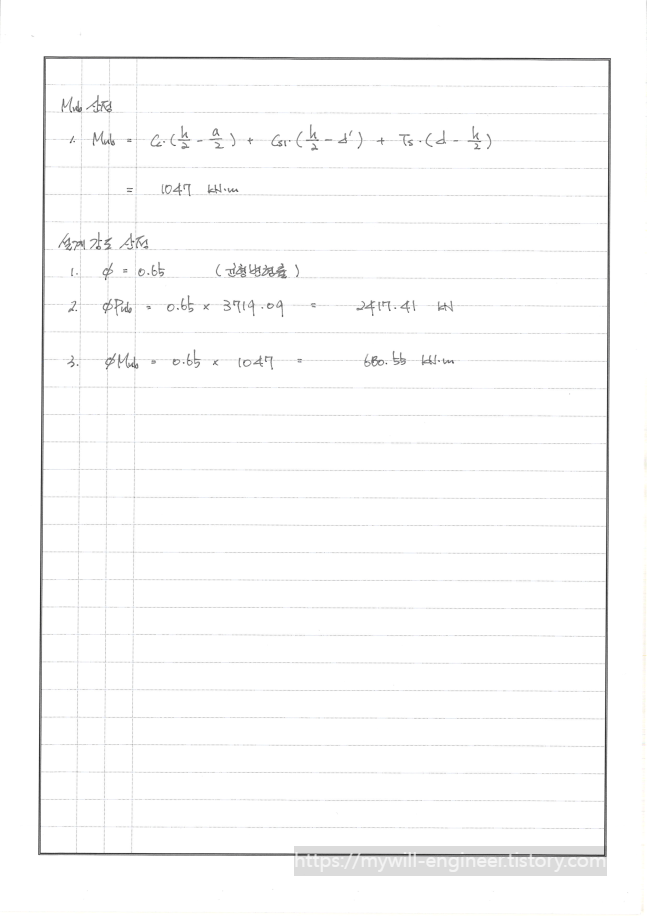 Mub 산정
1. Mub = Cc·(h/2 - a/2) + Cs1·(h/2 - d') + Ts·(d - h/2)
= 1047 kN·m
설계강도 산정
1. φ = 0.65 (균형변형률)
2. φPub = 0.65 × 3719.09 = 2417.41 kN
3. φMub = 0.65 × 1047 = 680.55 kN·m
https://mywill-engineer.tistory.com